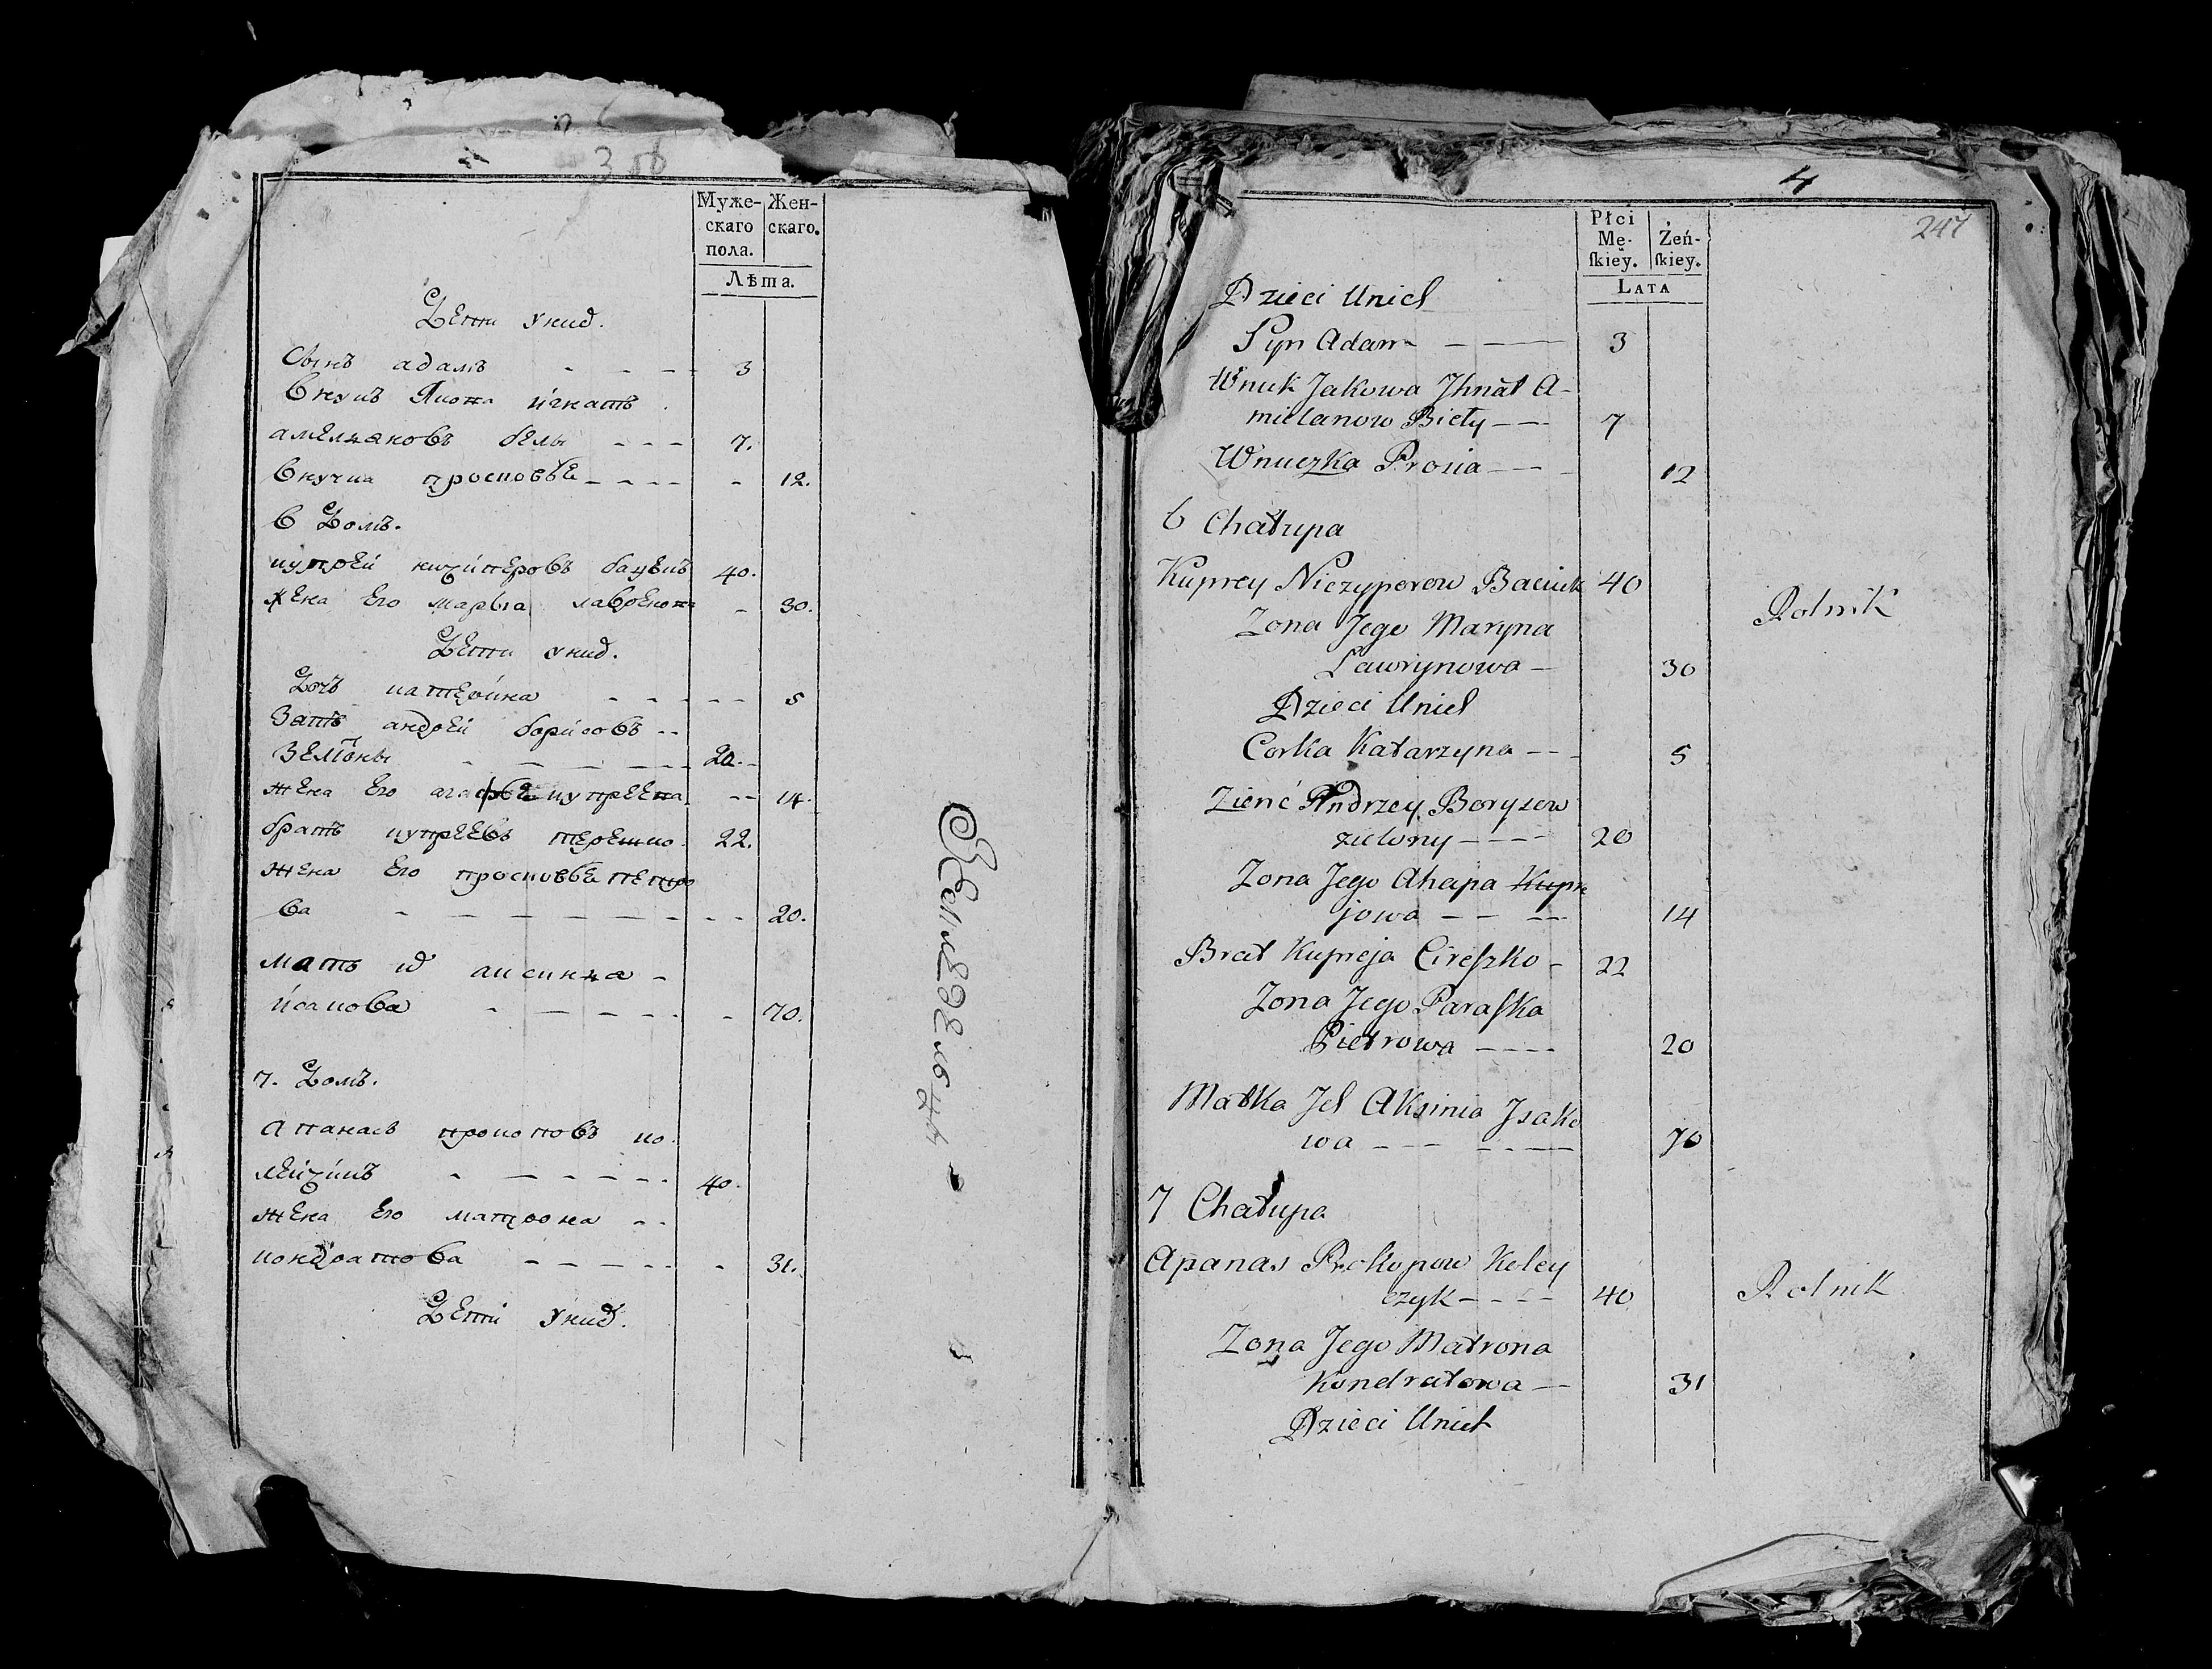 3 об
Муже-
скаго
пола.
Жен-
скаго.
Лѣта.
Дети унид.
Сынъ адамъ - - - - 3
Внукъ Якова игнатъ
амелчановъ белы - - - 7.
внучка просковѣа - - - - - 12.
6 Домъ.
купрей ничипоровъ бацюкъ 40.
жена Его марына лавренова - 30.
Дети унид.
Дочъ катерина - - - - - 5
Зать андрей борисовъ - -
зелйоны - - - - - - 20 -
жена Его агафѣа купреева - - 14.
братъ купреевъ терешко. 22.
жена Его просковѣа петро
ва - - - - - - - - 20.
мать ид аксинча -
исакова - - - - - - 70.
7. Домъ.
Апанасъ прокоповъ ко.
лейчикъ - - - - - - 40.
жена Его матрона - -
кондратова - - - - - - 31.
Дети унид.
Земледельцы
4
247
Płci
Mę-
ſkiey.
Żeń-
ſkiey.
LATA
Dzieci Unich
Syn Adam - - - 3
Wnuk Jakowa Jhnat A-
mielanow Bieły - - - 7
Wnuczka Prosia - - - 12
6 Chałupa
Kuprey Niczyporow Baciuk 40
Rolnik
Zona Jego Maryna
Lawrynowa - 30
Dzieci Unich
Corka Katarzyna - - - 5
Zienć Andrzey Borysow
zielony - - - - 20
Zona Jego Ahapa Kupr
jowa - - - 14
Brat Kupreja Cireſzko - 22
Zona Jego Paraſka
Pietrowa - - - - 20
Matka Jch Aksinia Jsako
wa - - - - - - - 70
7 Chałupa
Apanas Prokopow Koley
czyk - - - - 40
Rolnik
Zona Jego Matrona
Kondratowa - 31
Dzieci Unich